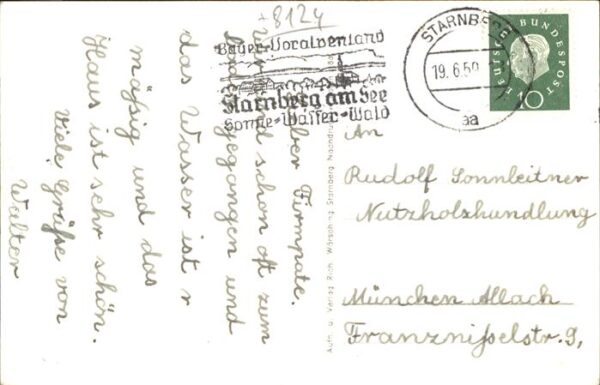 8124
Bayer-Voralpenland
Starnberg am See
Sonne-Wasser-Wald
STARNBERG
19.6.59
aa
DEUTSCHE BUNDESPOST
10
Lieber Firmpate.
wir sind schon oft zum
gegangen und
das Wasser ist r
mäßig und das
Haus ist sehr schön.
Viele Grüße von
Walter
Aufn. u. Verlag Rich. Wörsching, Starnberg
An
Rudolf Sonnleitner
Nutzholzhandlung
München Allach
Franznißelstr. 9,